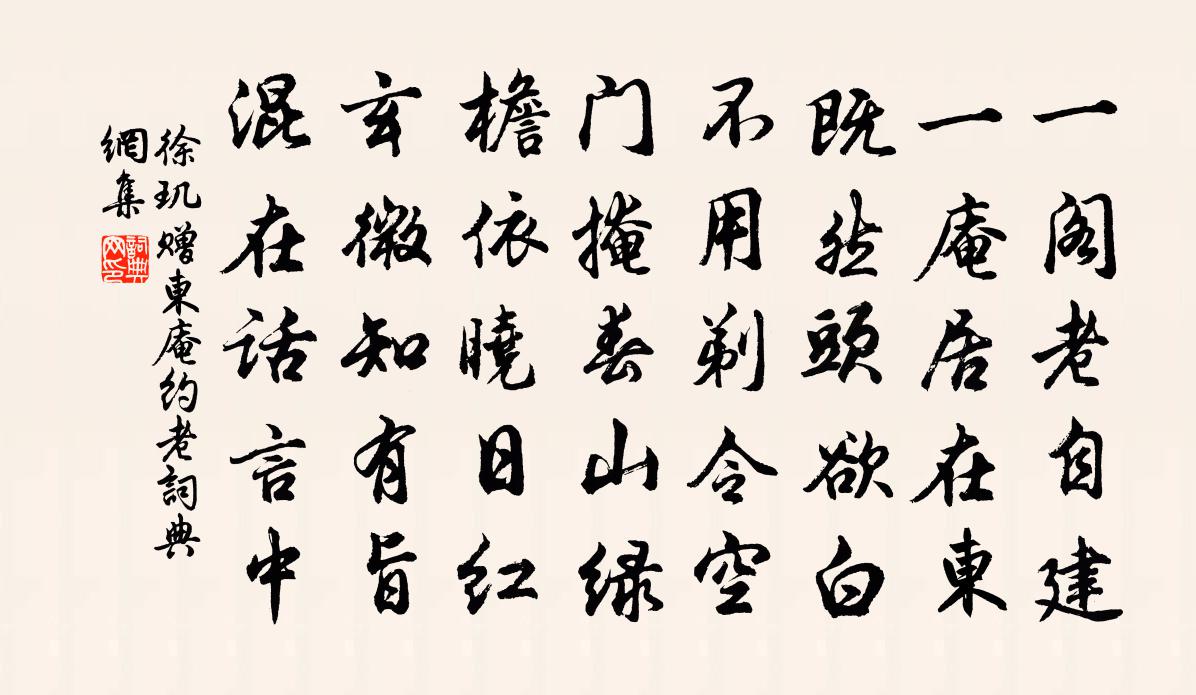 一阁老自建
一庵居在東
既然頭欲白
不用剃令空
门掩春山绿
檐依曉日红
玄微知有旨
混在话言中
徐玑赠東庵约老詞典
網集
詞典网印